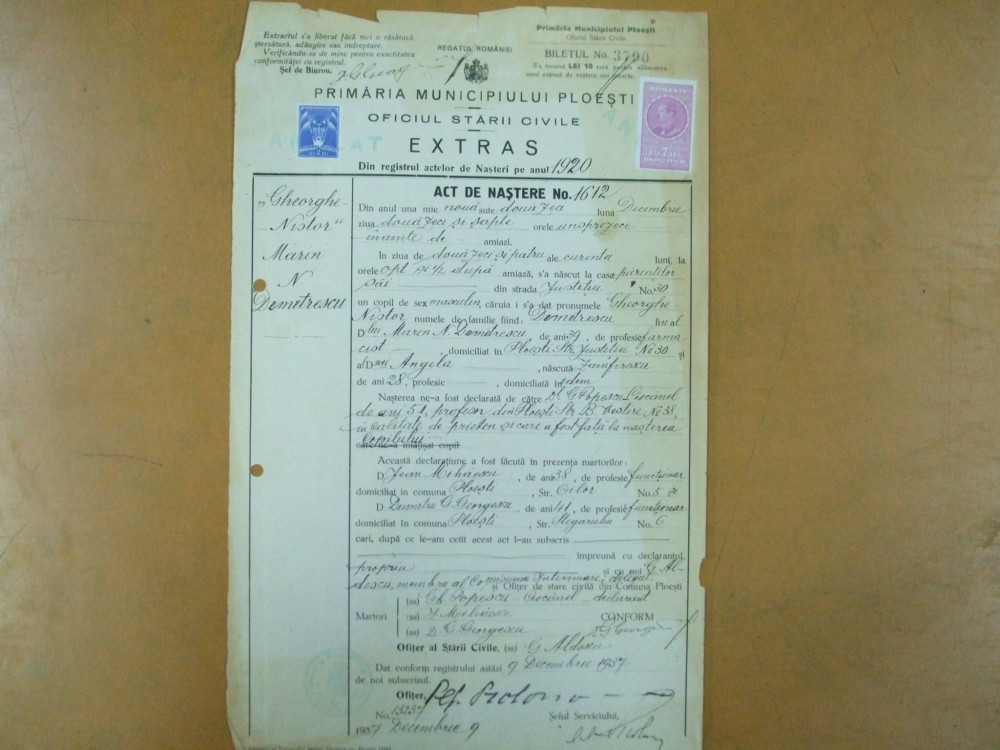 Extractul s'a liberat fără nici o răsătură,
ștersătură, adăugire sau îndreptare.
Verificându-se de mine pentru exactitatea
conformităței cu registrul.
Șef de Birou,
REGATUL ROMÂNIEI
Primăria Municipiului Ploești
Oficiul Stării Civile
BILETUL No. 3790
S'a încasat LEI 10 taxă pentru eliberarea
unui extract de naștere sau moarte.
PRIMĂRIA MUNICIPIULUI PLOEȘTI
OFICIUL STĂRII CIVILE
EXTRAS
Din registrul actelor de Nașteri pe anul 1920
ROMANIA
„Gheorghe-
Nistor"
Marin
N
Demetrescu
ACT DE NAȘTERE No. 1612
Din anul una mie nouă sute două zeci luna Decembrie
ziua două zeci și șapte orele unsprezece
înainte de amiazi.
In ziua de două zeci și patru ale curenta luni, la
orele opt și ½ după amiază, s'a născut la casa părintilor
săi din strada Justitiei No. 30
un copil de sex masculin, căruia i s'a dat pronumele Gheorghe-
Nistor numele de familie fiind: Demetrescu fiu al
Dlui Marin N. Demetrescu, de ani 39, de profesie farma
cist domiciliat în Ploești Str. Justitiei No 30 și
al Dnei Angela, născută Zamfirescu
de ani 28, profesie, domiciliată în idem
Nașterea ne-a fost declarată de către Dl G. Popescu Ciocănel
de ani 51, profesor din Ploești Str. B No 38,
în calitate de prieten și care a fost față la nașterea
Copilului
care ne-a înfățișat copil
Această declarațiune a fost făcută în prezența martorilor:
D. Jean Mihăescu, de ani 38, de profesie funcționar
domiciliat în comuna Ploești, Str. Oilor No. 5
D. Dumitru C. Georgescu, de ani 41, de profesie funcționar
domiciliat în comuna Ploești, Str. No. 6
cari, după ce le-am cetit acest act l-au subscris
împreună cu declarantul,
propriu și cu noi G. Al-
descu, membru al Comisiunei Interimare, delegat
și Ofițer de stare civilă din Comuna Ploești
Martori
(ss) Gh. Popescu-Ciocănel declarant
(ss) J. Mihăescu CONFORM
(ss) D. C. Georgescu
Ofițer al Stării Civile. (ss) G. Aldescu
Dat conform registrului astăzi 9 Decembrie 1937
de noi subscrisul.
Ofițer,
No. 13237
1937 Decembrie 9
Șeful Serviciului,